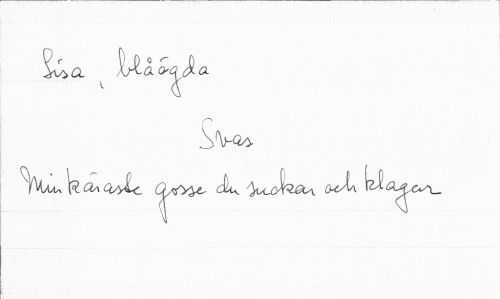 Lisa, blåögda
Svar
Min käraste gosse du suckar och klagar